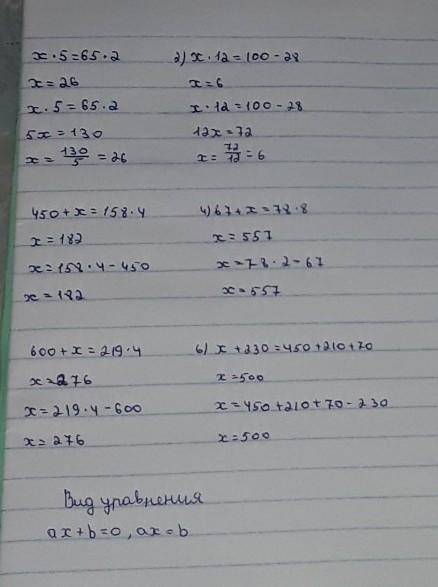 x · 5 = 65 · 2
x = 26
x · 5 = 65 · 2
5x = 130
x = 130/5 = 26
2) x · 12 = 100 - 28
x = 6
x · 12 = 100 - 28
12x = 72
x = 72/12 = 6
450 + x = 158 · 4
x = 182
x = 158 · 4 - 450
x = 182
4) 67 + x = 78 · 8
x = 557
x = 78 · 2 - 67
x = 557
600 + x = 219 · 4
x = 276
x = 219 · 4 - 600
x = 276
6) x + 230 = 450 + 210 + 70
x = 500
x = 450 + 210 + 70 - 230
x = 500
Вид уравнения
ax + b = 0, ax = b